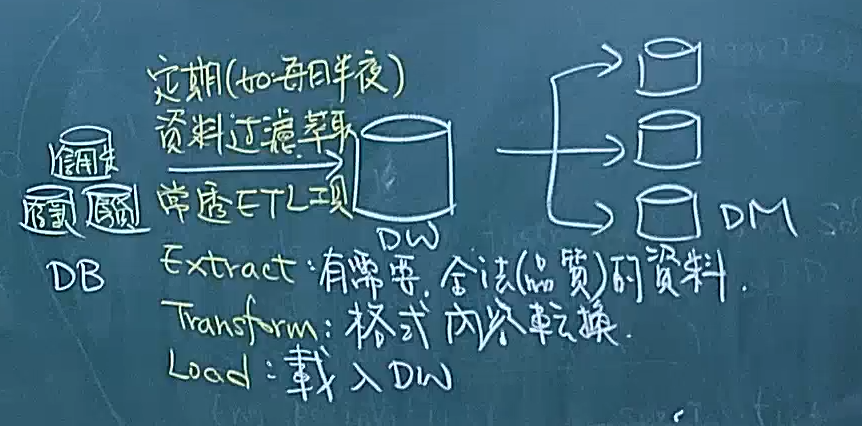 定期(如:每日半夜)
資料过濾,萃取
信用卡
常透ETL工具
存款
DB
DW
DM
Extract:有需要,合法(品質)的資料.
Transform:格式內容転換.
Load:載入DW